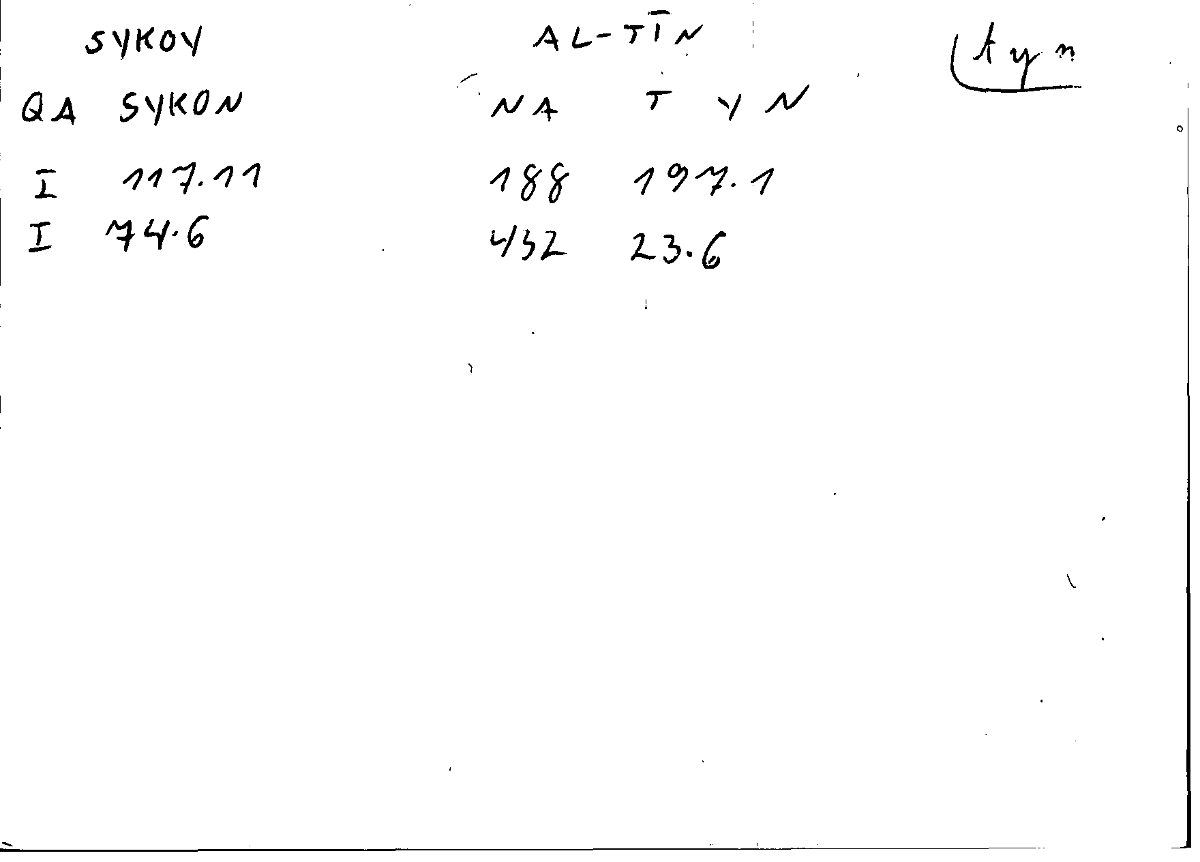 SYKOY AL-TĪN tyn
QA SYKON NA T Y N
I 117.11 188 197.1
I 74.6 432 23.6